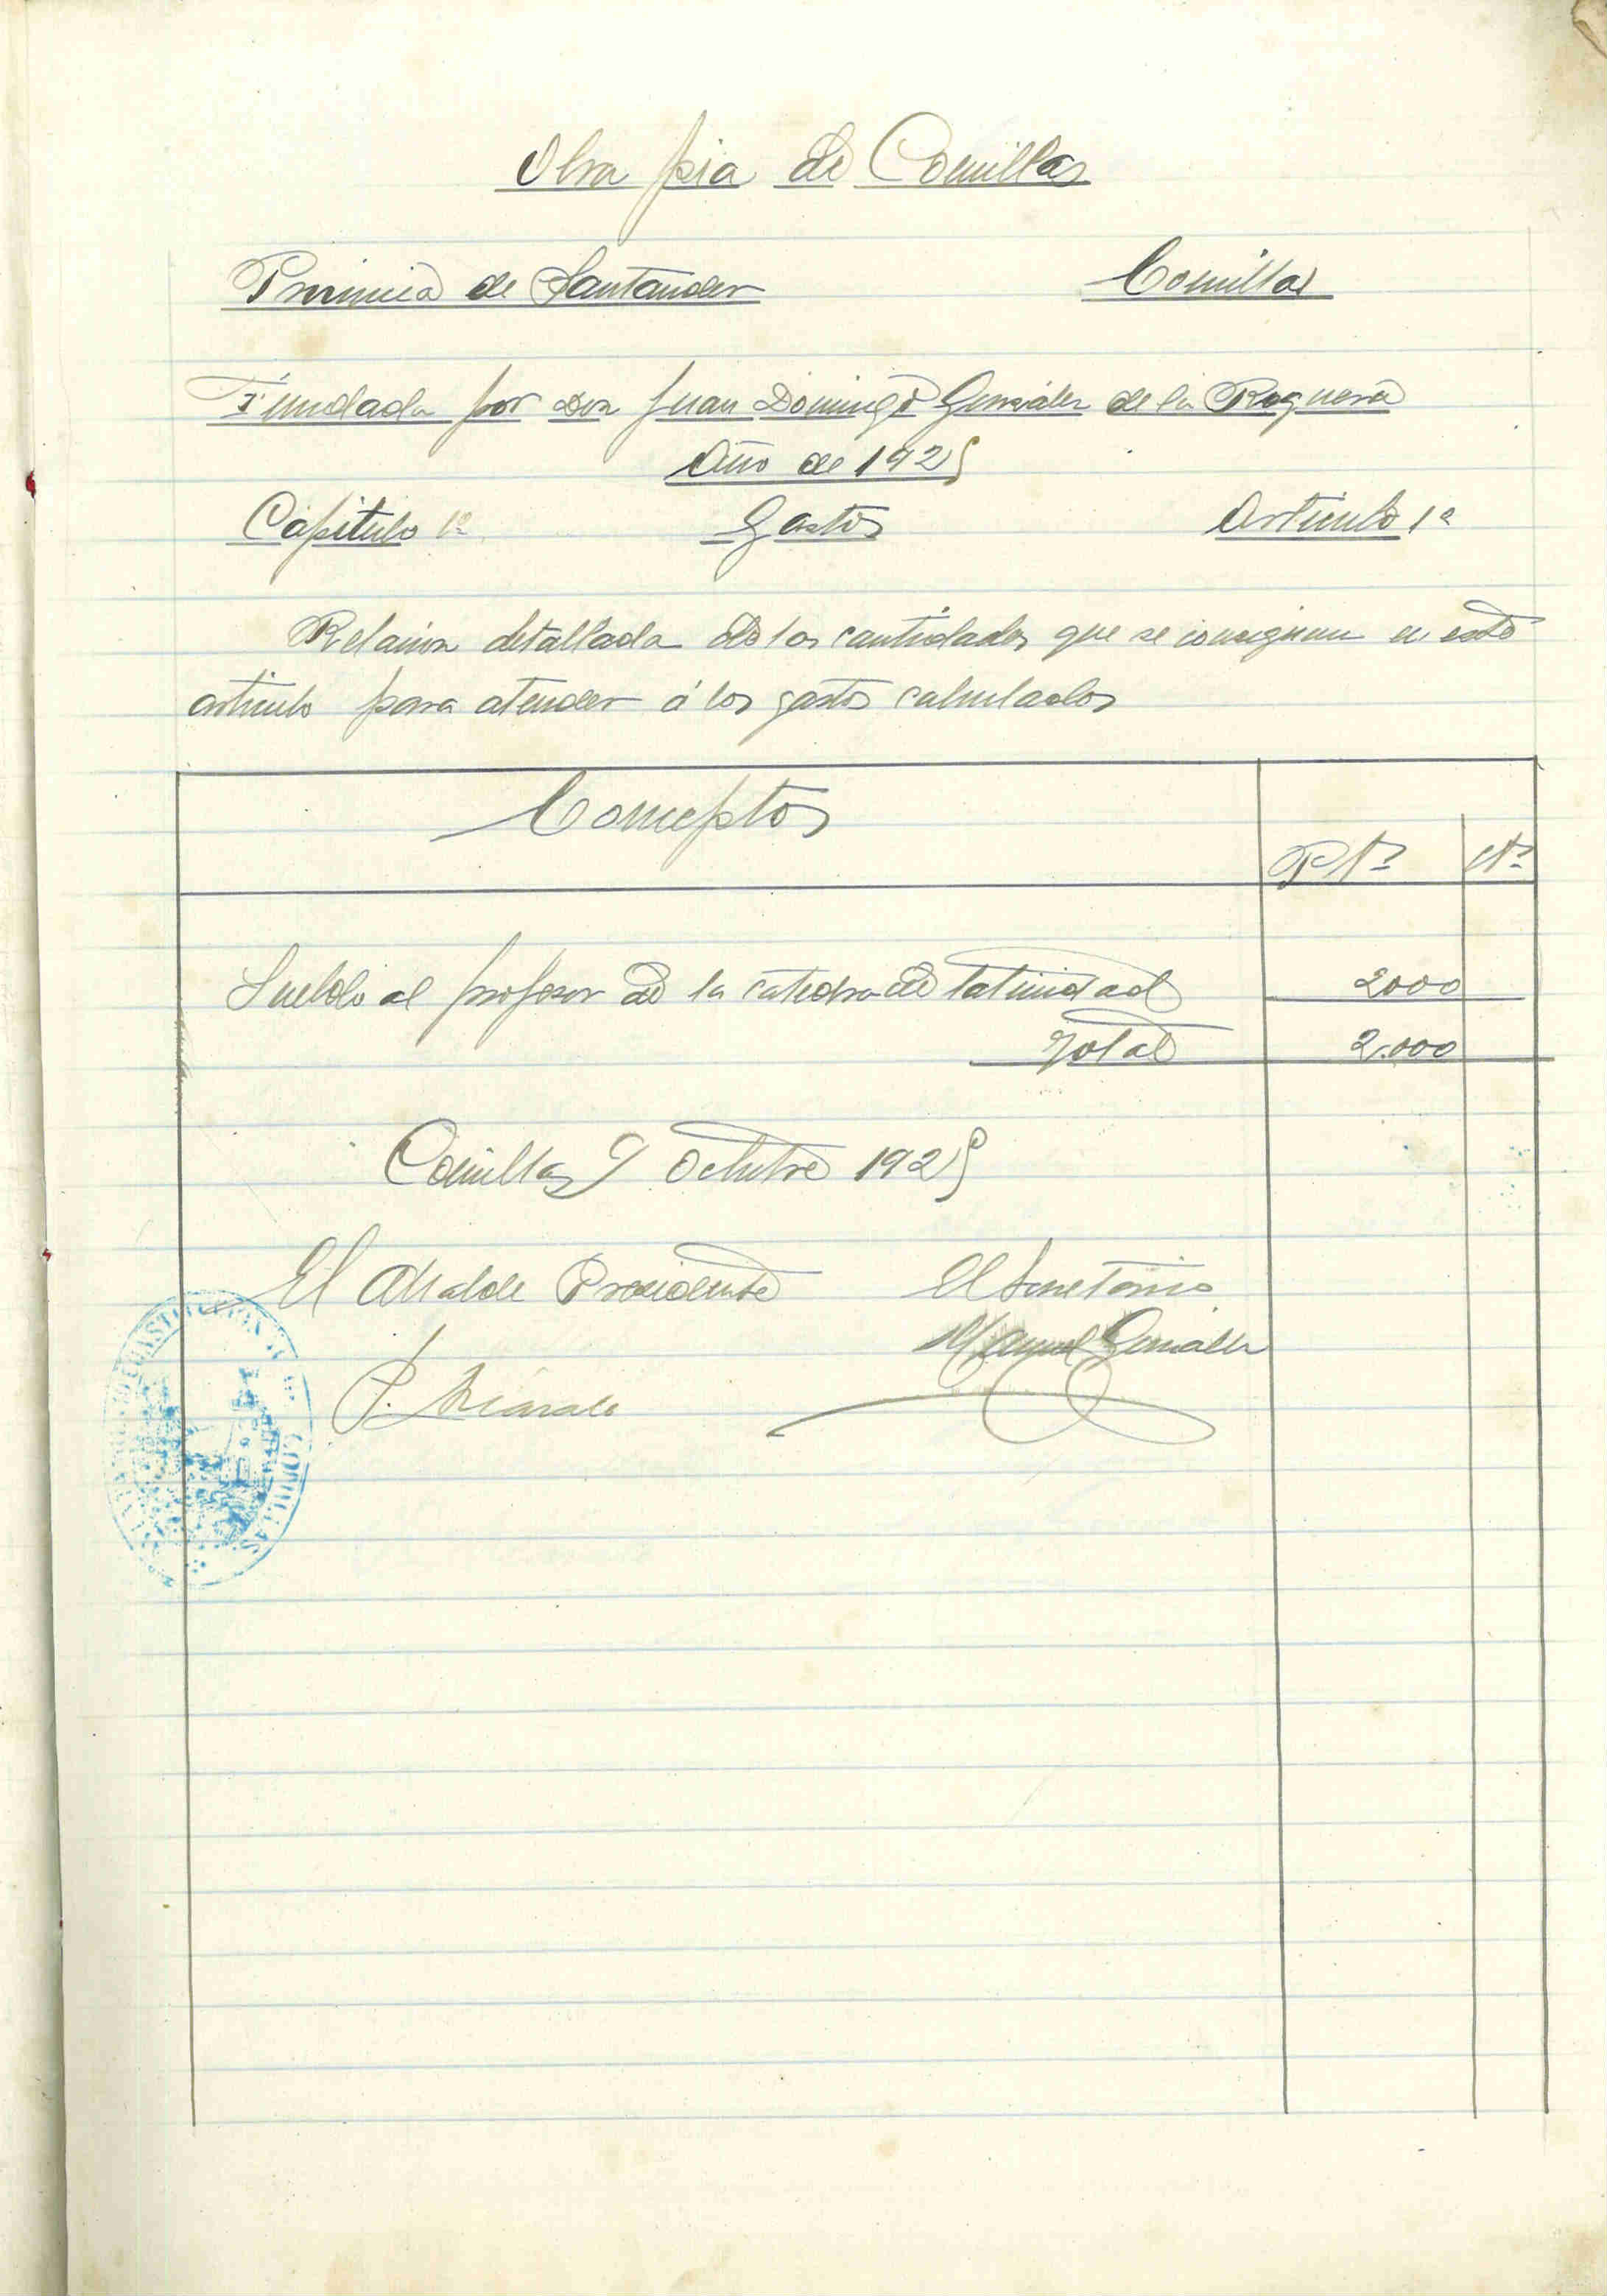 Obra pia de Comillas
Provincia de Santander Comillas
Fundada por Don Juan Domingo González de la Reguera
Año de 1925
Capitulo 1º Gastos Articulo 1º
Relacion detallada de las cantidades que se consignan en este
articulo para atender á los gastos calculados
Conceptos
Pts Cts
Sueldo al profesor de la catedra de latinidad 2000
Total 2.000
Comillas 9 Octubre 1925
El Alcalde Presidente El Secretario
Manuel González
P.
COMILLAS